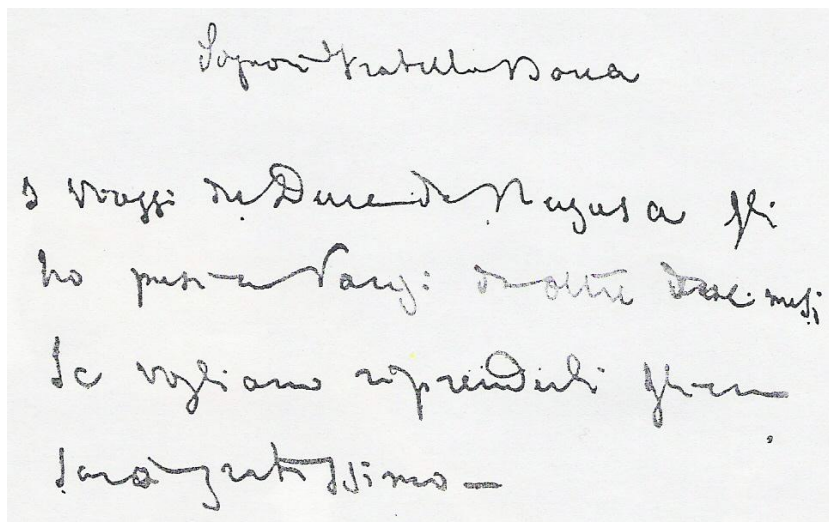 Signori Fratelli Bocca
I viaggi du Duca de Ragusa gli
ho presi a Parigi da oltre due mesi
Se vogliano riprenderli gliene
sarò gratissimo —